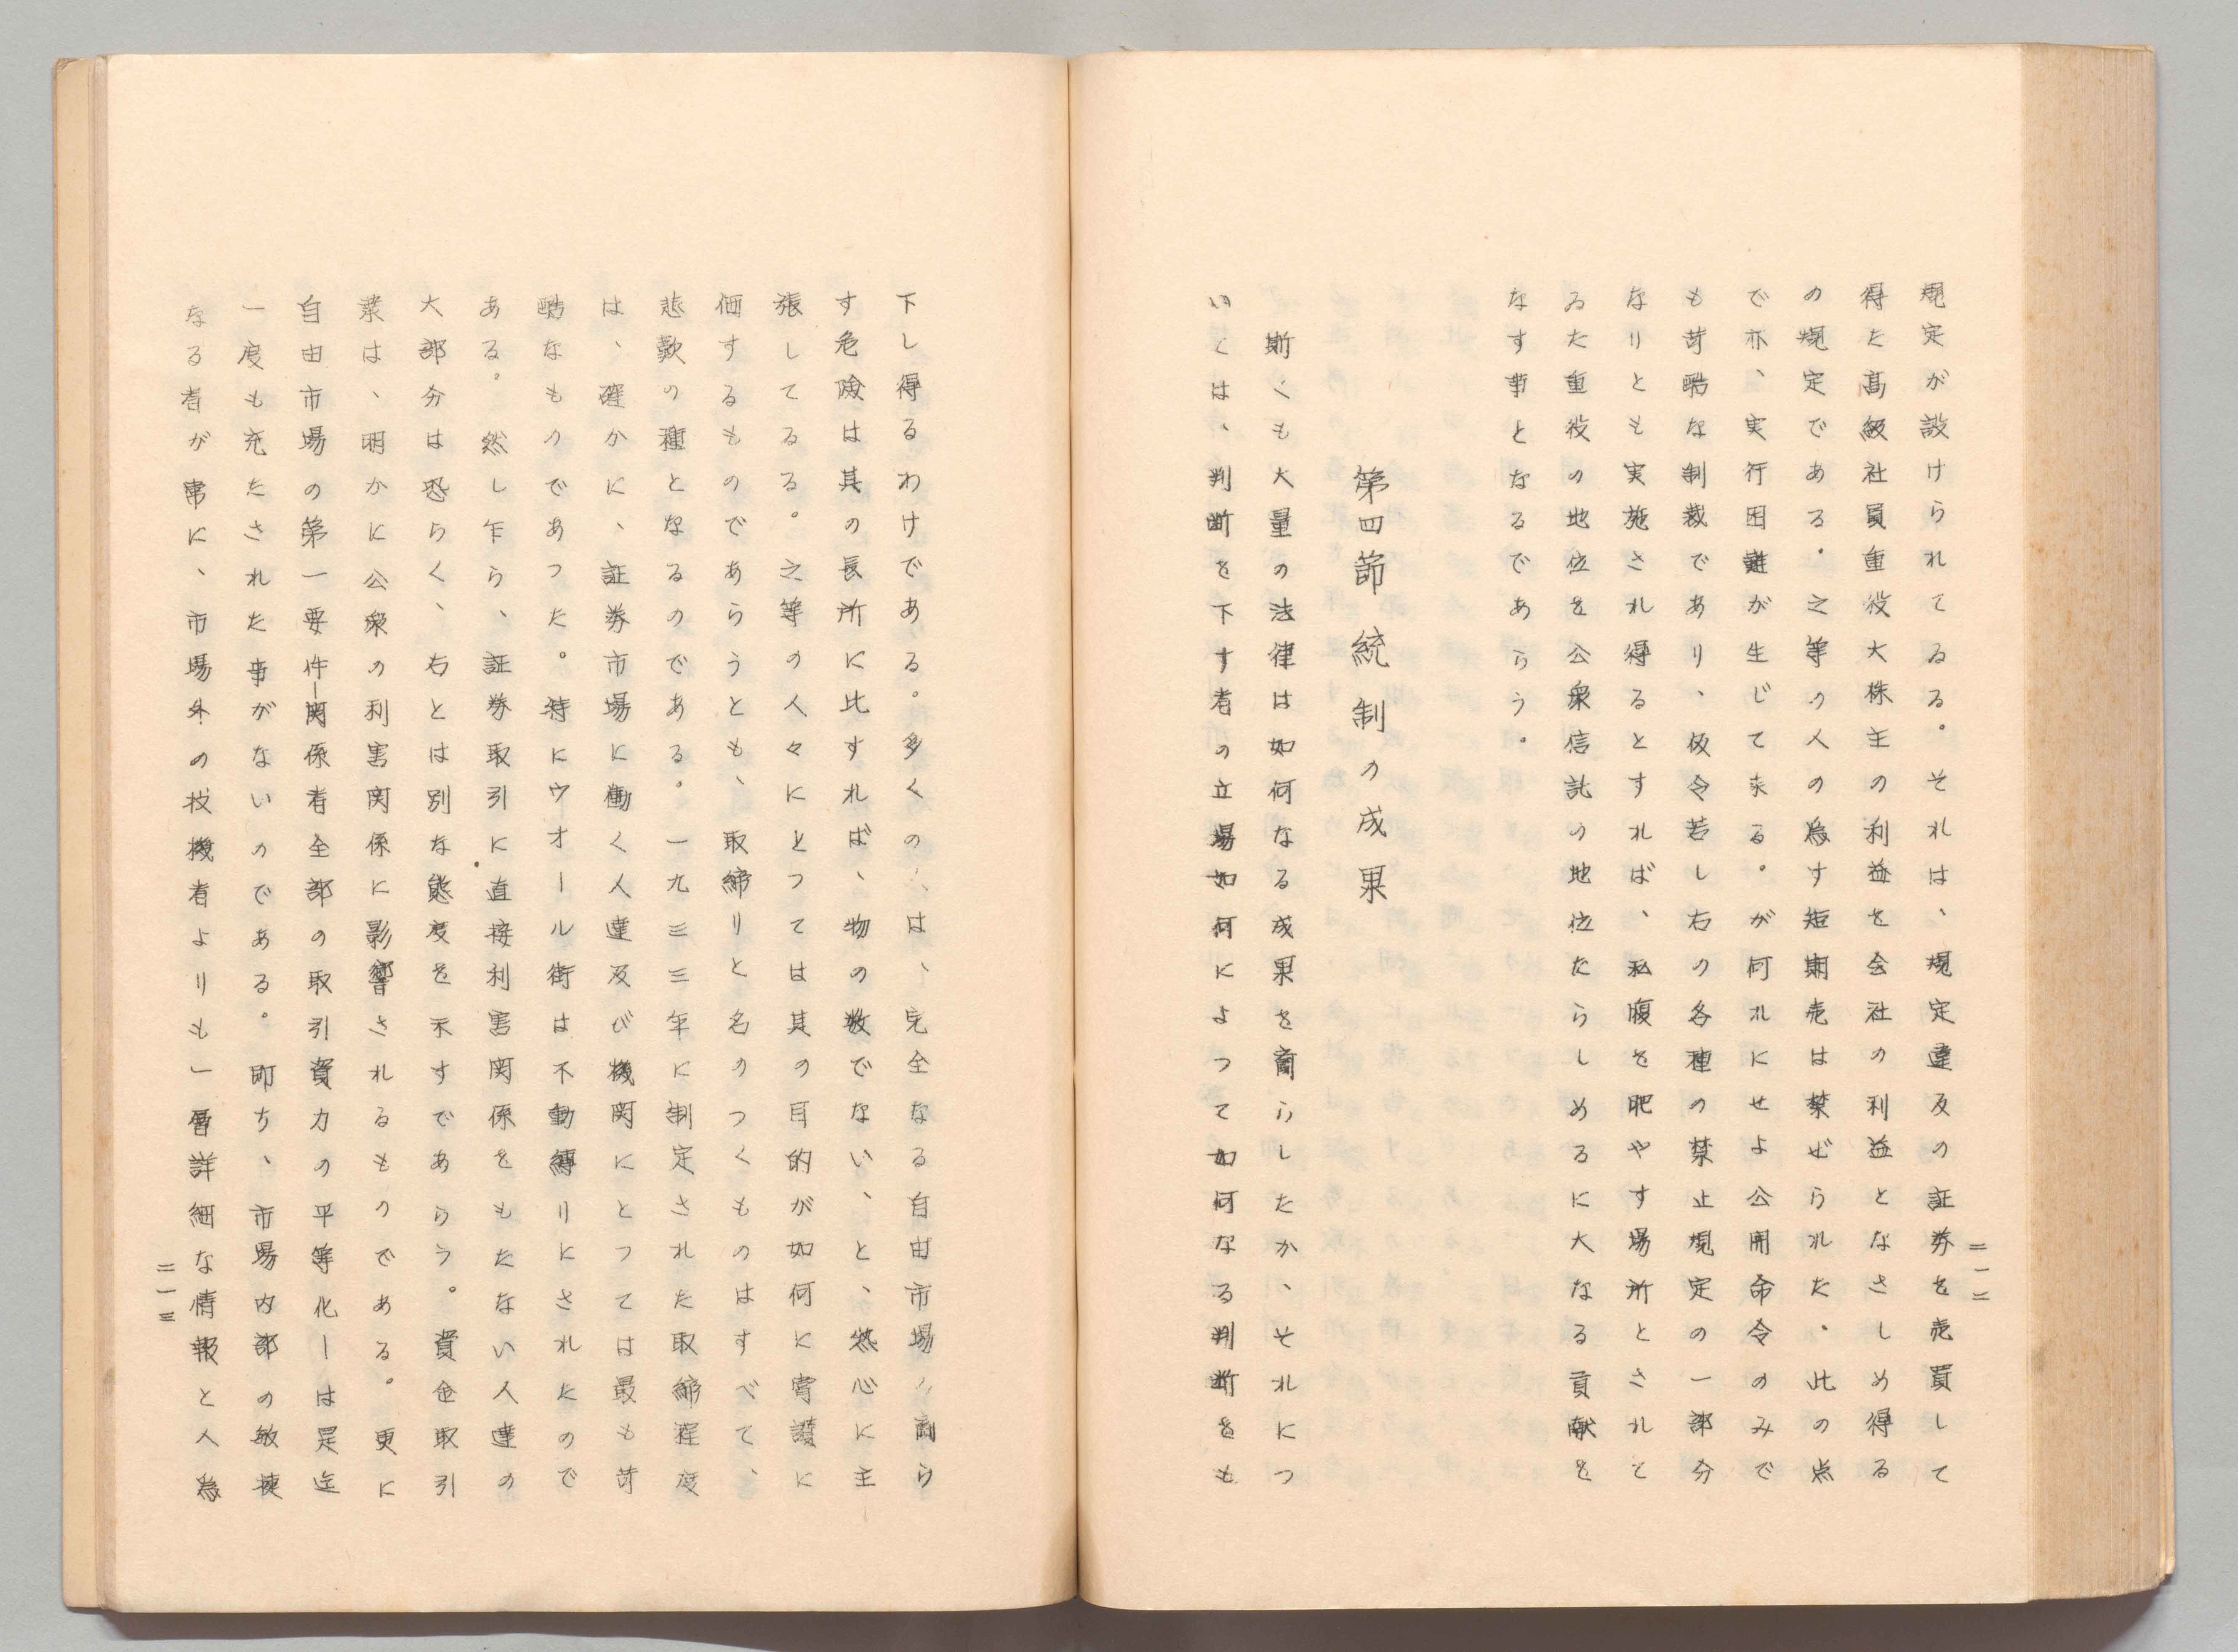 規定が設けられてゐる。それは、規定違反の証券を売買して
得た高級社員重役大株主の利益を会社の利益となさしめ得る
の規定である。之等の人の為す短期売は禁ぜられた。此の点
で亦、実行困難が生じて来る。が何れにせよ公開命令のみで
も苛酷な制裁であり、仮令若し右の各種の禁止規定の一部分
なりとも実施され得るとすれば、私腹を肥やす場所とされて
ゐた重役の地位を公衆信託の地位たらしめるに大なる貢献を
なす事となるであらう。
第四節 統制の成果
斯くも大量の法律は如何なる成果を齎らしたか、それにつ
いては、判断を下す者の立場如何によつて如何なる判断をも
二一二
下し得るわけである。多くの人は、完全なる自由市場の齎ら
す危険は其の長所に比すれば、物の数でない、と、熱心に主
張してゐる。之等の人々にとつては其の目的が如何に賞讃に
価するものであらうとも、取締りと名のつくものはすべて、
悲歎の種となるのである。一九三三年に制定された取締程度
は、確かに、証券市場に働く人達及び機関にとつては最も苛
酷なものであつた。特にウオール街は不動縛りにされたので
ある。然し乍ら、証券取引に直接利害関係をもたない人達の
大部分は恐らく、右とは別な態度を示すであらう。資金取引
業は、明かに公衆の利害関係に影響されるものである。更に
自由市場の第一要件―関係者全部の取引資力の平等化―は是迄
一度も充たされた事がないのである。即ち、市場内部の敏捷
なる者が常に、市場外の投機者よりも一層詳細な情報と人為
二一三